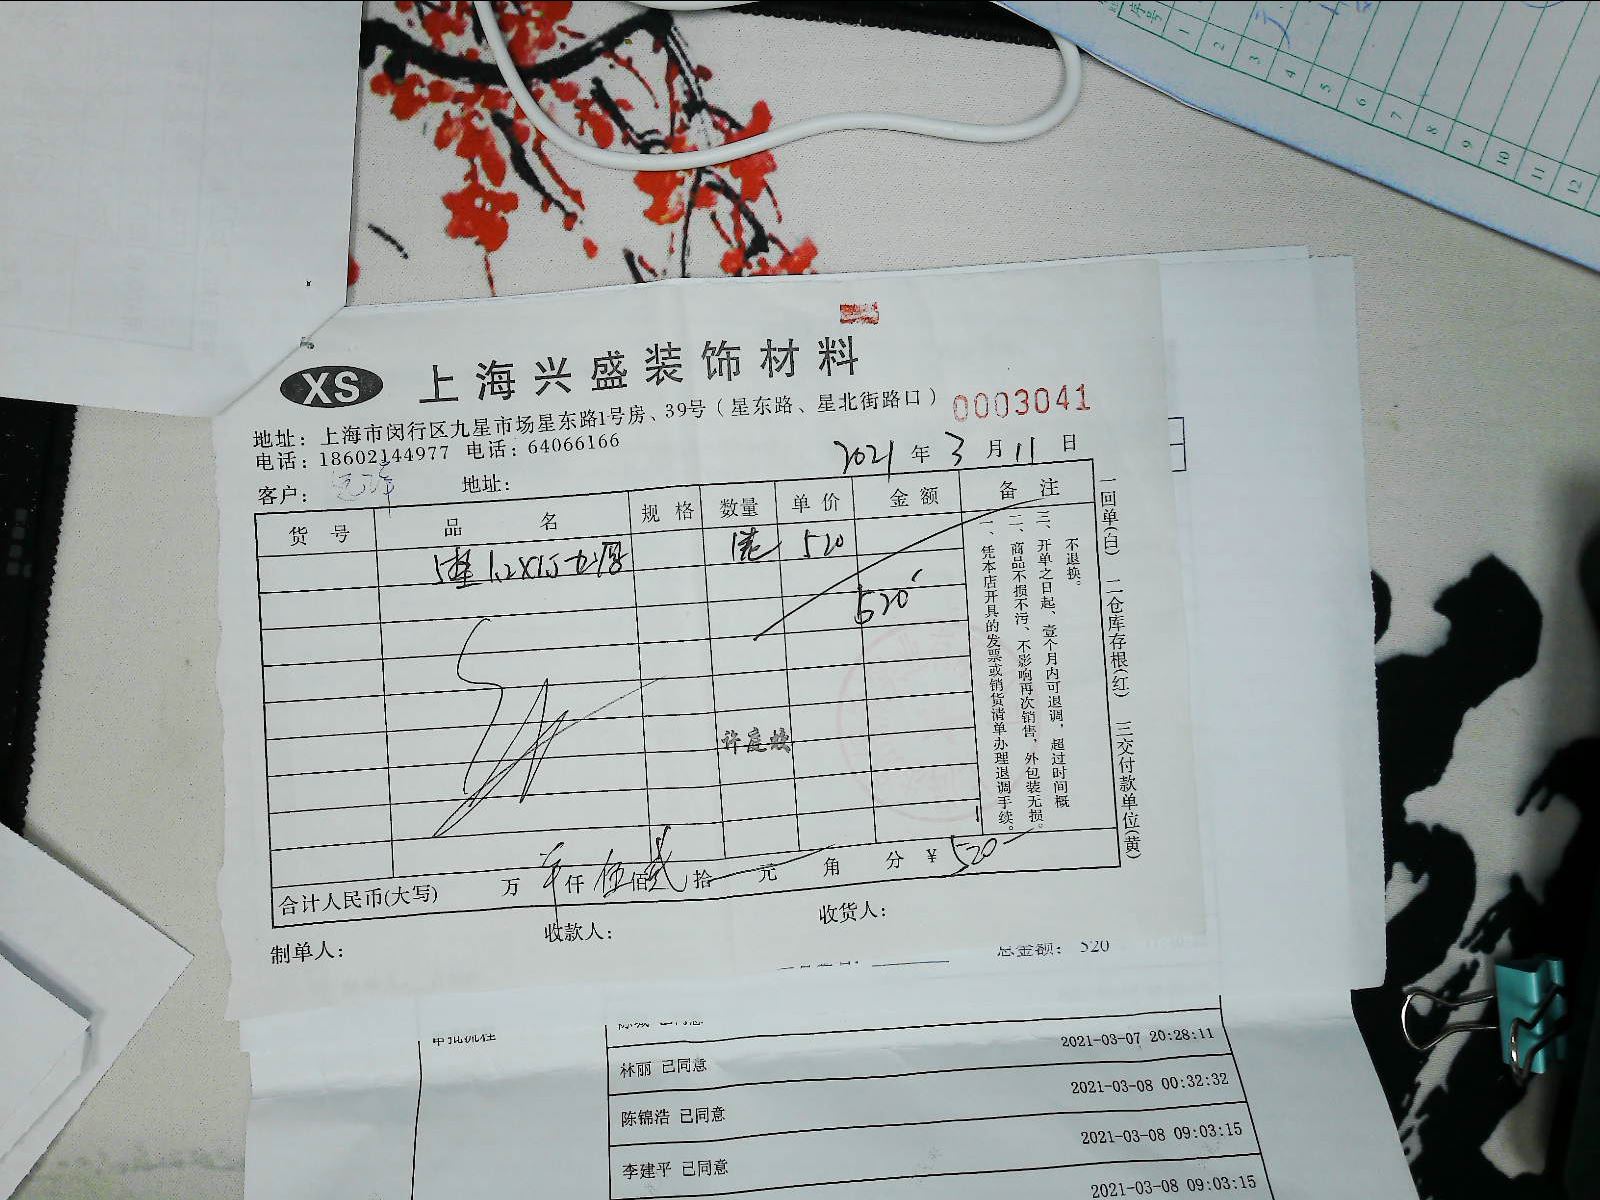 序号
1
2
3
4
5
6
7
8
9
10
11
12
XS 上海兴盛装饰材料
地址：上海市闵行区九星市场星东路1号房、39号（星东路、星北街路口） 0003041
电话：18602144977 电话：64066166
2021 年 3 月 11 日
客户： 地址：
货号 品名 规格 数量 单价 金额 备注
1.2X1.5 520
520
一、凭本店开具的发票或销货清单办理退调手续。
二、商品不损不污、不影响再次销售、外包装无损。
三、开单之日起、壹个月内可退调，超过时间概
不退换。
一回单(白) 二仓库存根(红) 三交付款单位(黄)
合计人民币(大写) 万 仟 伍 佰 贰 拾 元 角 分 ¥ 520
制单人： 收款人： 收货人：
总金额： 520
审批流程
林丽 已同意 2021-03-07 20:28:11
陈锦浩 已同意 2021-03-08 00:32:32
李建平 已同意 2021-03-08 09:03:15
2021-03-08 09:03:15